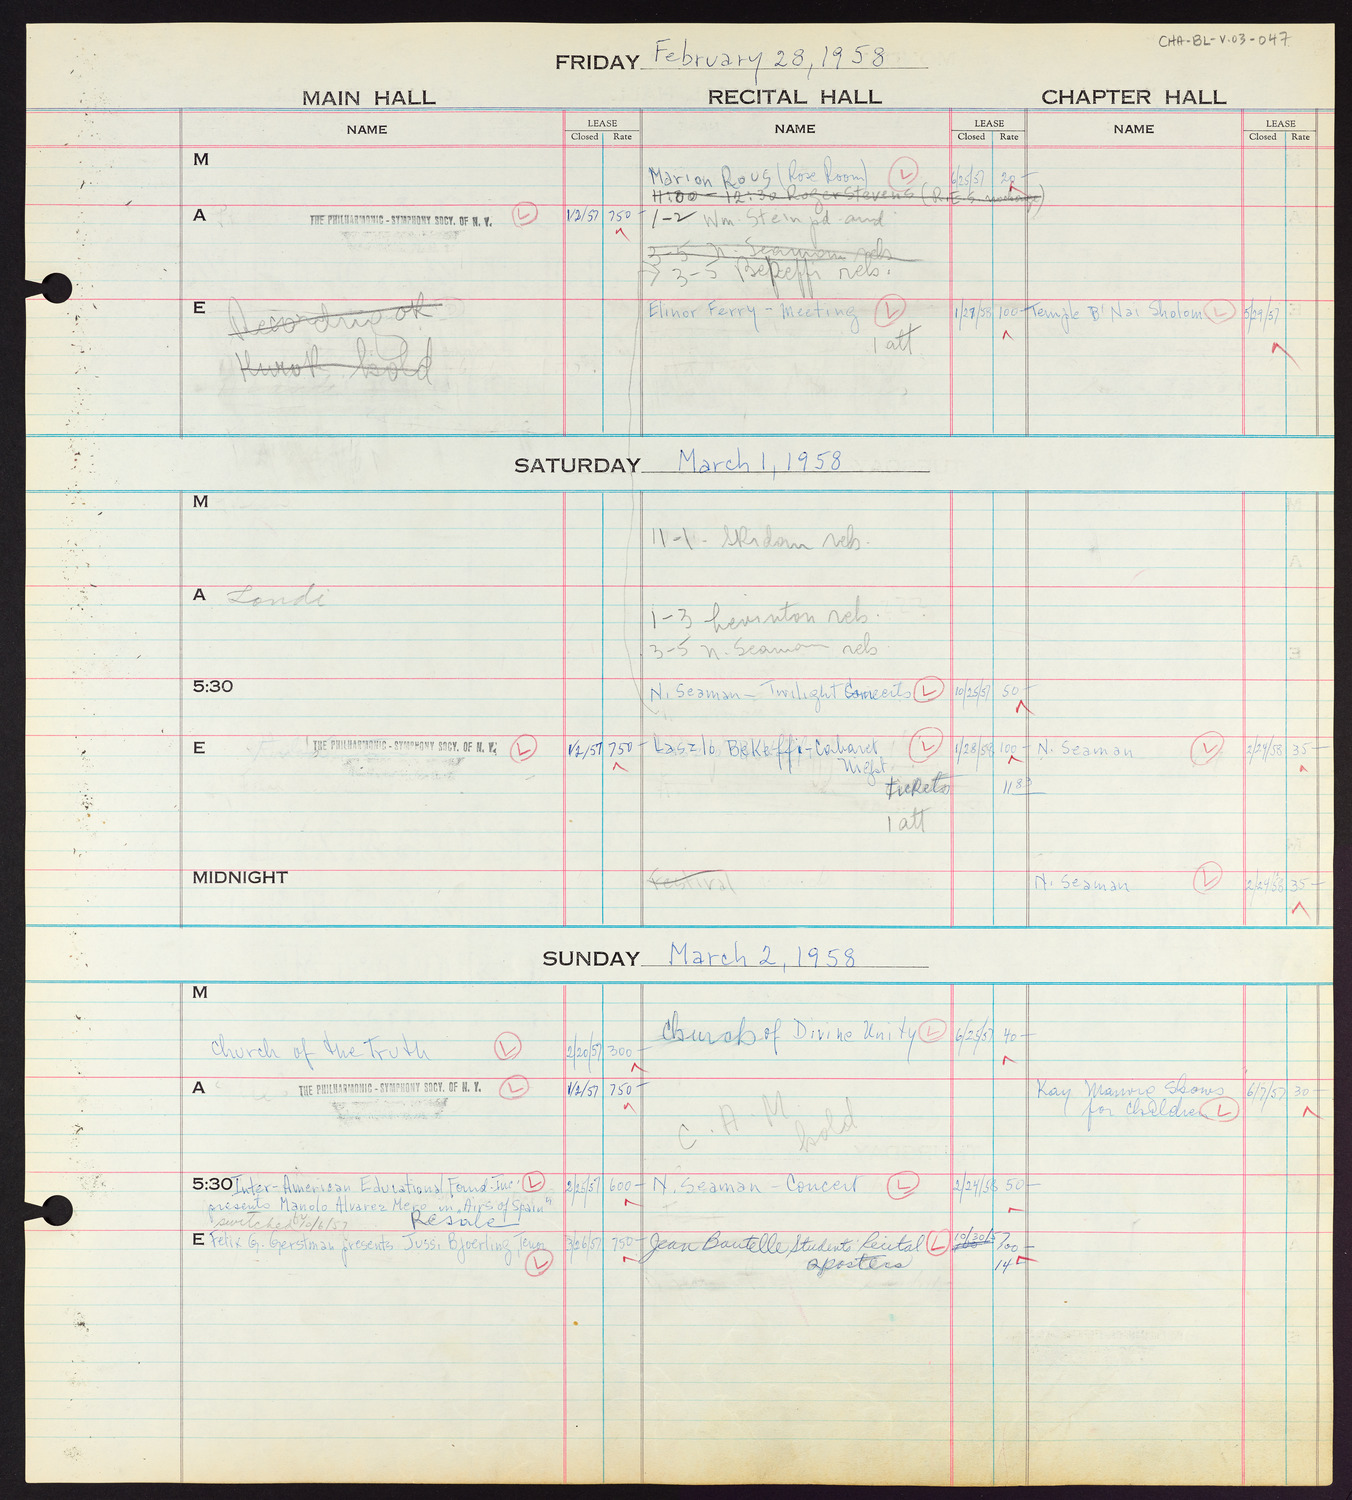 CHA-BL-V.03-047
FRIDAY February 28, 1958
MAIN HALL RECITAL HALL CHAPTER HALL
NAME LEASE Closed Rate NAME LEASE Closed Rate NAME LEASE Closed Rate
M
Marion Rous (Rose Room) L 6/25/57 20-
11:00 - 12:30 Roger Stevens (R.E.S.
A THE PHILHARMONIC-SYMPHONY SOCY. OF N. Y. L 1/2/57 750- 1-2 Wm. Stein pd. and
3-5 N. Seaman reh.
3-5 Bekeffi reh.
E Recording ok Elinor Ferry - Meeting L 1/27/58 100- Temple B'Nai Sholom L 5/29/57
1 att
Hurok hold
SATURDAY March 1, 1958
M
11-1- reh.
A Londi
1-3 Levinton reh.
3-5 N. Seaman reh
5:30 N. Seaman - Twilight Concerts L 10/25/57 50-
E THE PHILHARMONIC-SYMPHONY SOCY. OF N. Y. L 1/2/57 750- Laszlo Bekeffi - Cabaret L 1/28/58 100- N. Seaman L 2/24/58 35-
Night
tickets 11 83
1 att
MIDNIGHT Festival N. Seaman L 2/24/58 35-
SUNDAY March 2, 1958
M
Church of Divine Unity L 6/25/57 40-
Church of the Truth L 2/20/57 300-
A THE PHILHARMONIC-SYMPHONY SOCY. OF N. Y. L 1/2/57 750- Kay Shows 6/7/57 30-
for Children L
C.A.M
hold
5:30 Inter-American Educational Found-Inc. L 2/25/57 600- N. Seaman - Concert L 2/24/58 50-
presents Manolo Alvarez Mera in "Airs of Spain"
switched 10/6/57 Resale
E Felix G. Gerstman presents Jussi Bjoerling, Tenor 3/26/57 750- Jean Boutelle Students' Recital L 10/30/57 100-
L 2 posters 14